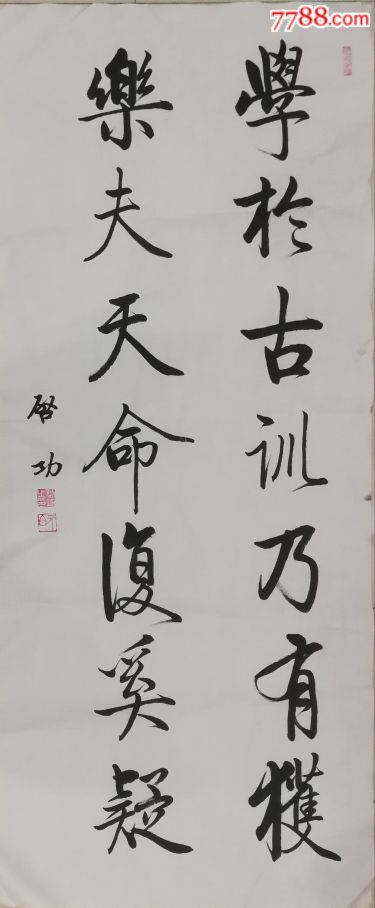 7788.com
學於古訓乃有獲
樂夫天命復奚疑
啓功